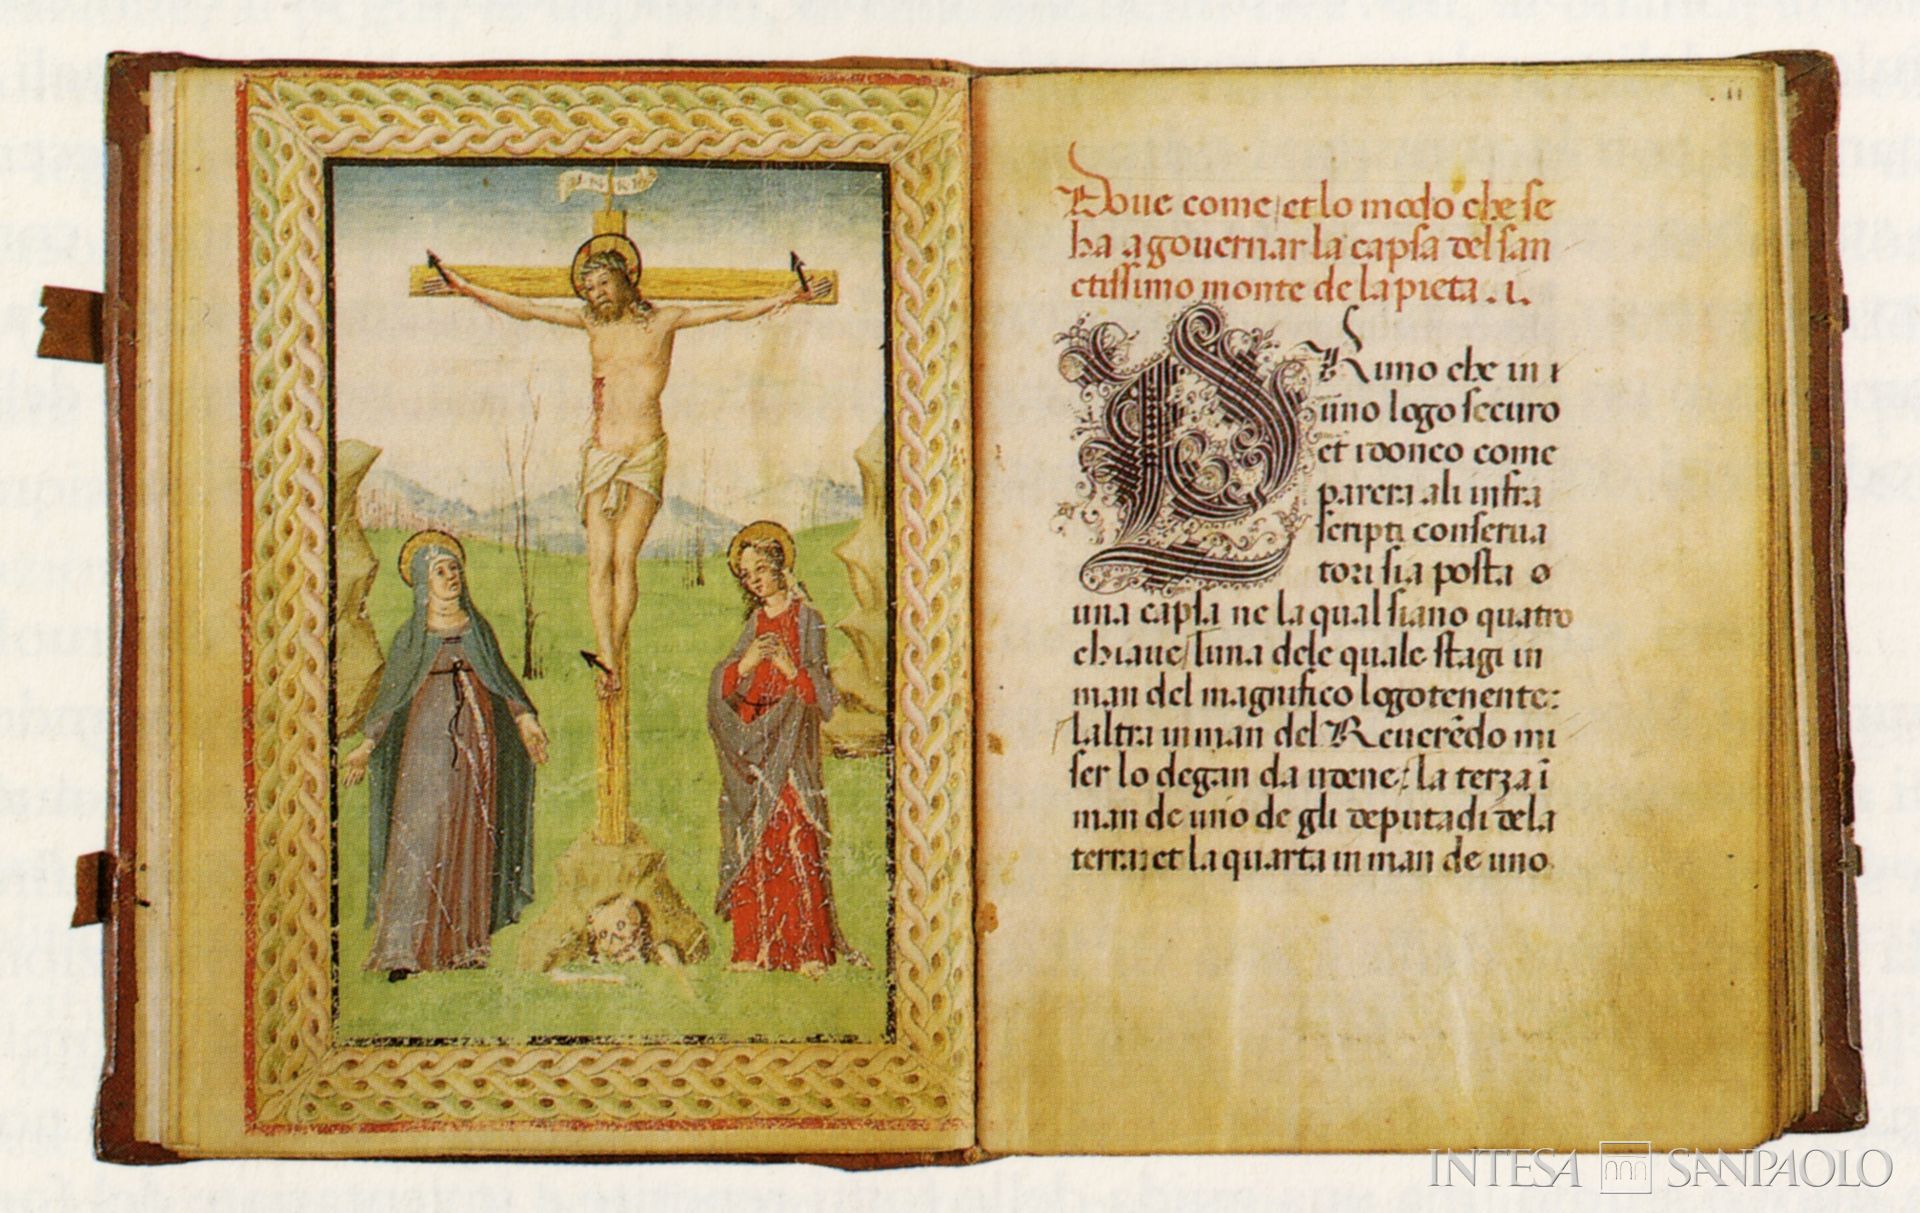 I·N·R·I
11
Doue come et lo modo che se
ha a gouernar la capsa del san
ctissimo monte de la pieta . i .
PRimo che in i
uno logo securo
et idoneo come
parera ali infra
scripti conserua
tori sia posta o
una capsa ne la qual siano quatro
chiaue/ luna dele quale stagi in
man del magnifico logotenente:
laltra in man del Reuerẽdo mi
ser lo degan da udene: la terza ĩ
man de uno de gli deputadi dela
terra: et la quarta in man de uno
INTESA SANPAOLO